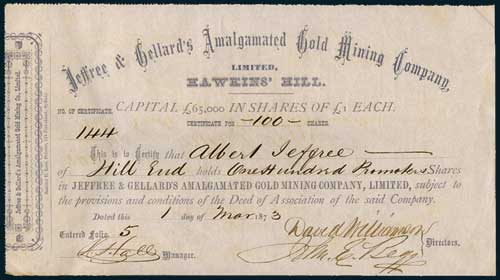 Jeffree & Gellard's Amalgamated Gold Mining Company,
LIMITED,
HAWKINS' HILL.
NO. OF CERTIFICATE. CAPITAL £65,000 IN SHARES OF £1 EACH.
144
CERTIFICATE FOR -100- SHARES.
This is to Certify that Albert Jeffree
of Hill End holds One Hundred Promoters Shares
in JEFFREE & GELLARD'S AMALGAMATED GOLD MINING COMPANY, LIMITED, subject to
the provisions and conditions of the Deed of Association of the said Company.
Dated this 1 day of Mar 1873
Entered Folio 5
David Williamson
Manager.
Directors.
Jeffree & Gellard's Amalgamated Gold Mining Co., Limited.